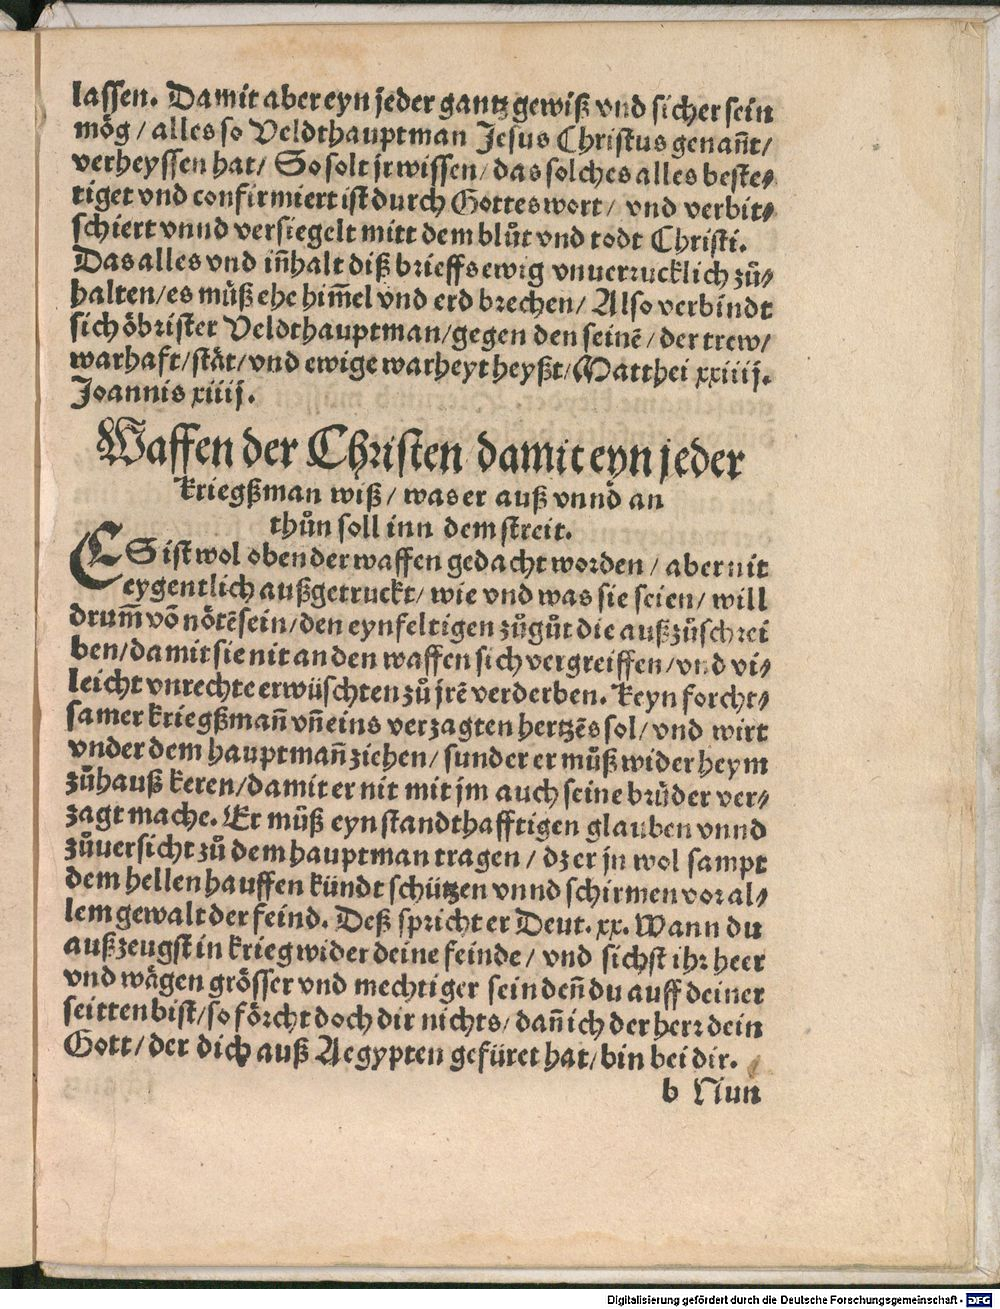 lassen. Damit aber eyn jeder gantz gewiß vnd sicher sein
mög / alles so Veldthauptman Jesus Christus genañt /
verheyssen hat / So solt jr wissen / das solches alles beste⸗
tiget vnd confirmiert ist durch Gottes wort / vnd verbit⸗
schiert vnnd versiegelt mitt dem blůt vnd todt Christi.
Das alles vnd iñhalt diß brieffs ewig vnuerrucklich zů⸗
halten / es můß ehe him̃el vnd erd brechen / Also verbindt
sich öbrister Veldthauptman / gegen den seinẽ / der trew /
warhaft / stät / vnd ewige warheyt heyßt / Matthei xxiiij.
Joannis xiiij.
Waffen der Christen damit eyn jeder
kriegßman wiß / was er auß vnnd an
thůn soll inn dem streit.
ES ist wol oben der waffen gedacht worden / aber nit
eygentlich außgetruckt / wie vnd was sie seien / will
drum̃ võ nötẽ sein / den eynfeltigen zůgůt die außzůschrei
ben / damit sie nit an den waffen sich vergreiffen / vnd vi⸗
leicht vnrechte erwüschten zů jrẽ verderben. Keyn forcht⸗
samer kriegßmañ vñ eins verzagten hertzẽs sol / vnd wirt
vnder dem hauptmañ ziehen / sunder er můß wider heym
zůhauß keren / damit er nit mit jm auch seine brüder ver⸗
zagt mache. Er můß eyn standthafftigen glauben vnnd
zůuersicht zů dem hauptman tragen / dz er jn wol sampt
dem hellen hauffen kündt schützen vnnd schirmen vor al⸗
lem gewalt der feind. Deß spricht er Deut. xx. Wann du
außzeugst in krieg wider deine feinde / vnd sichst ihr heer
vnd wägen grösser vnd mechtiger sein deñ du auff deiner
seitten bist / so förcht doch dir nichts / dañ ich der herr dein
Gott / der dich auß Aegypten gefüret hat / bin bei dir.
b Nun
Digitalisierung gefördert durch die Deutsche Forschungsgemeinschaft - DFG